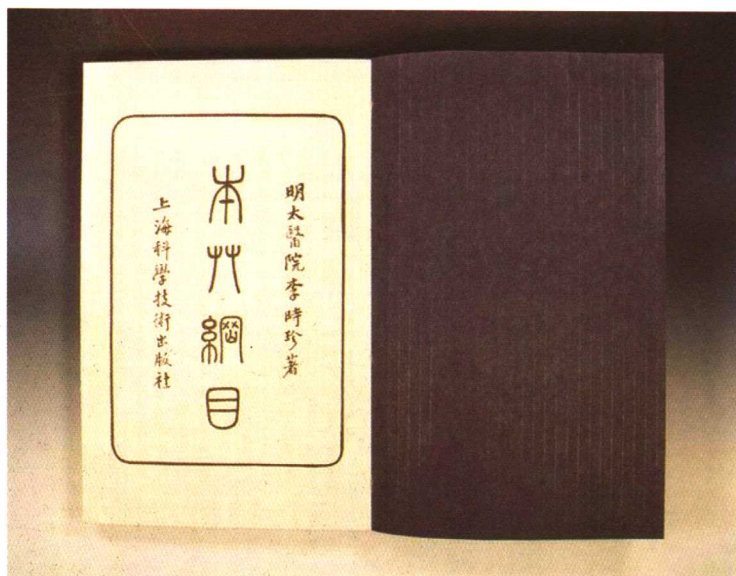 明太醫院李時珍著
本艸綱目
上海科學技術出版社